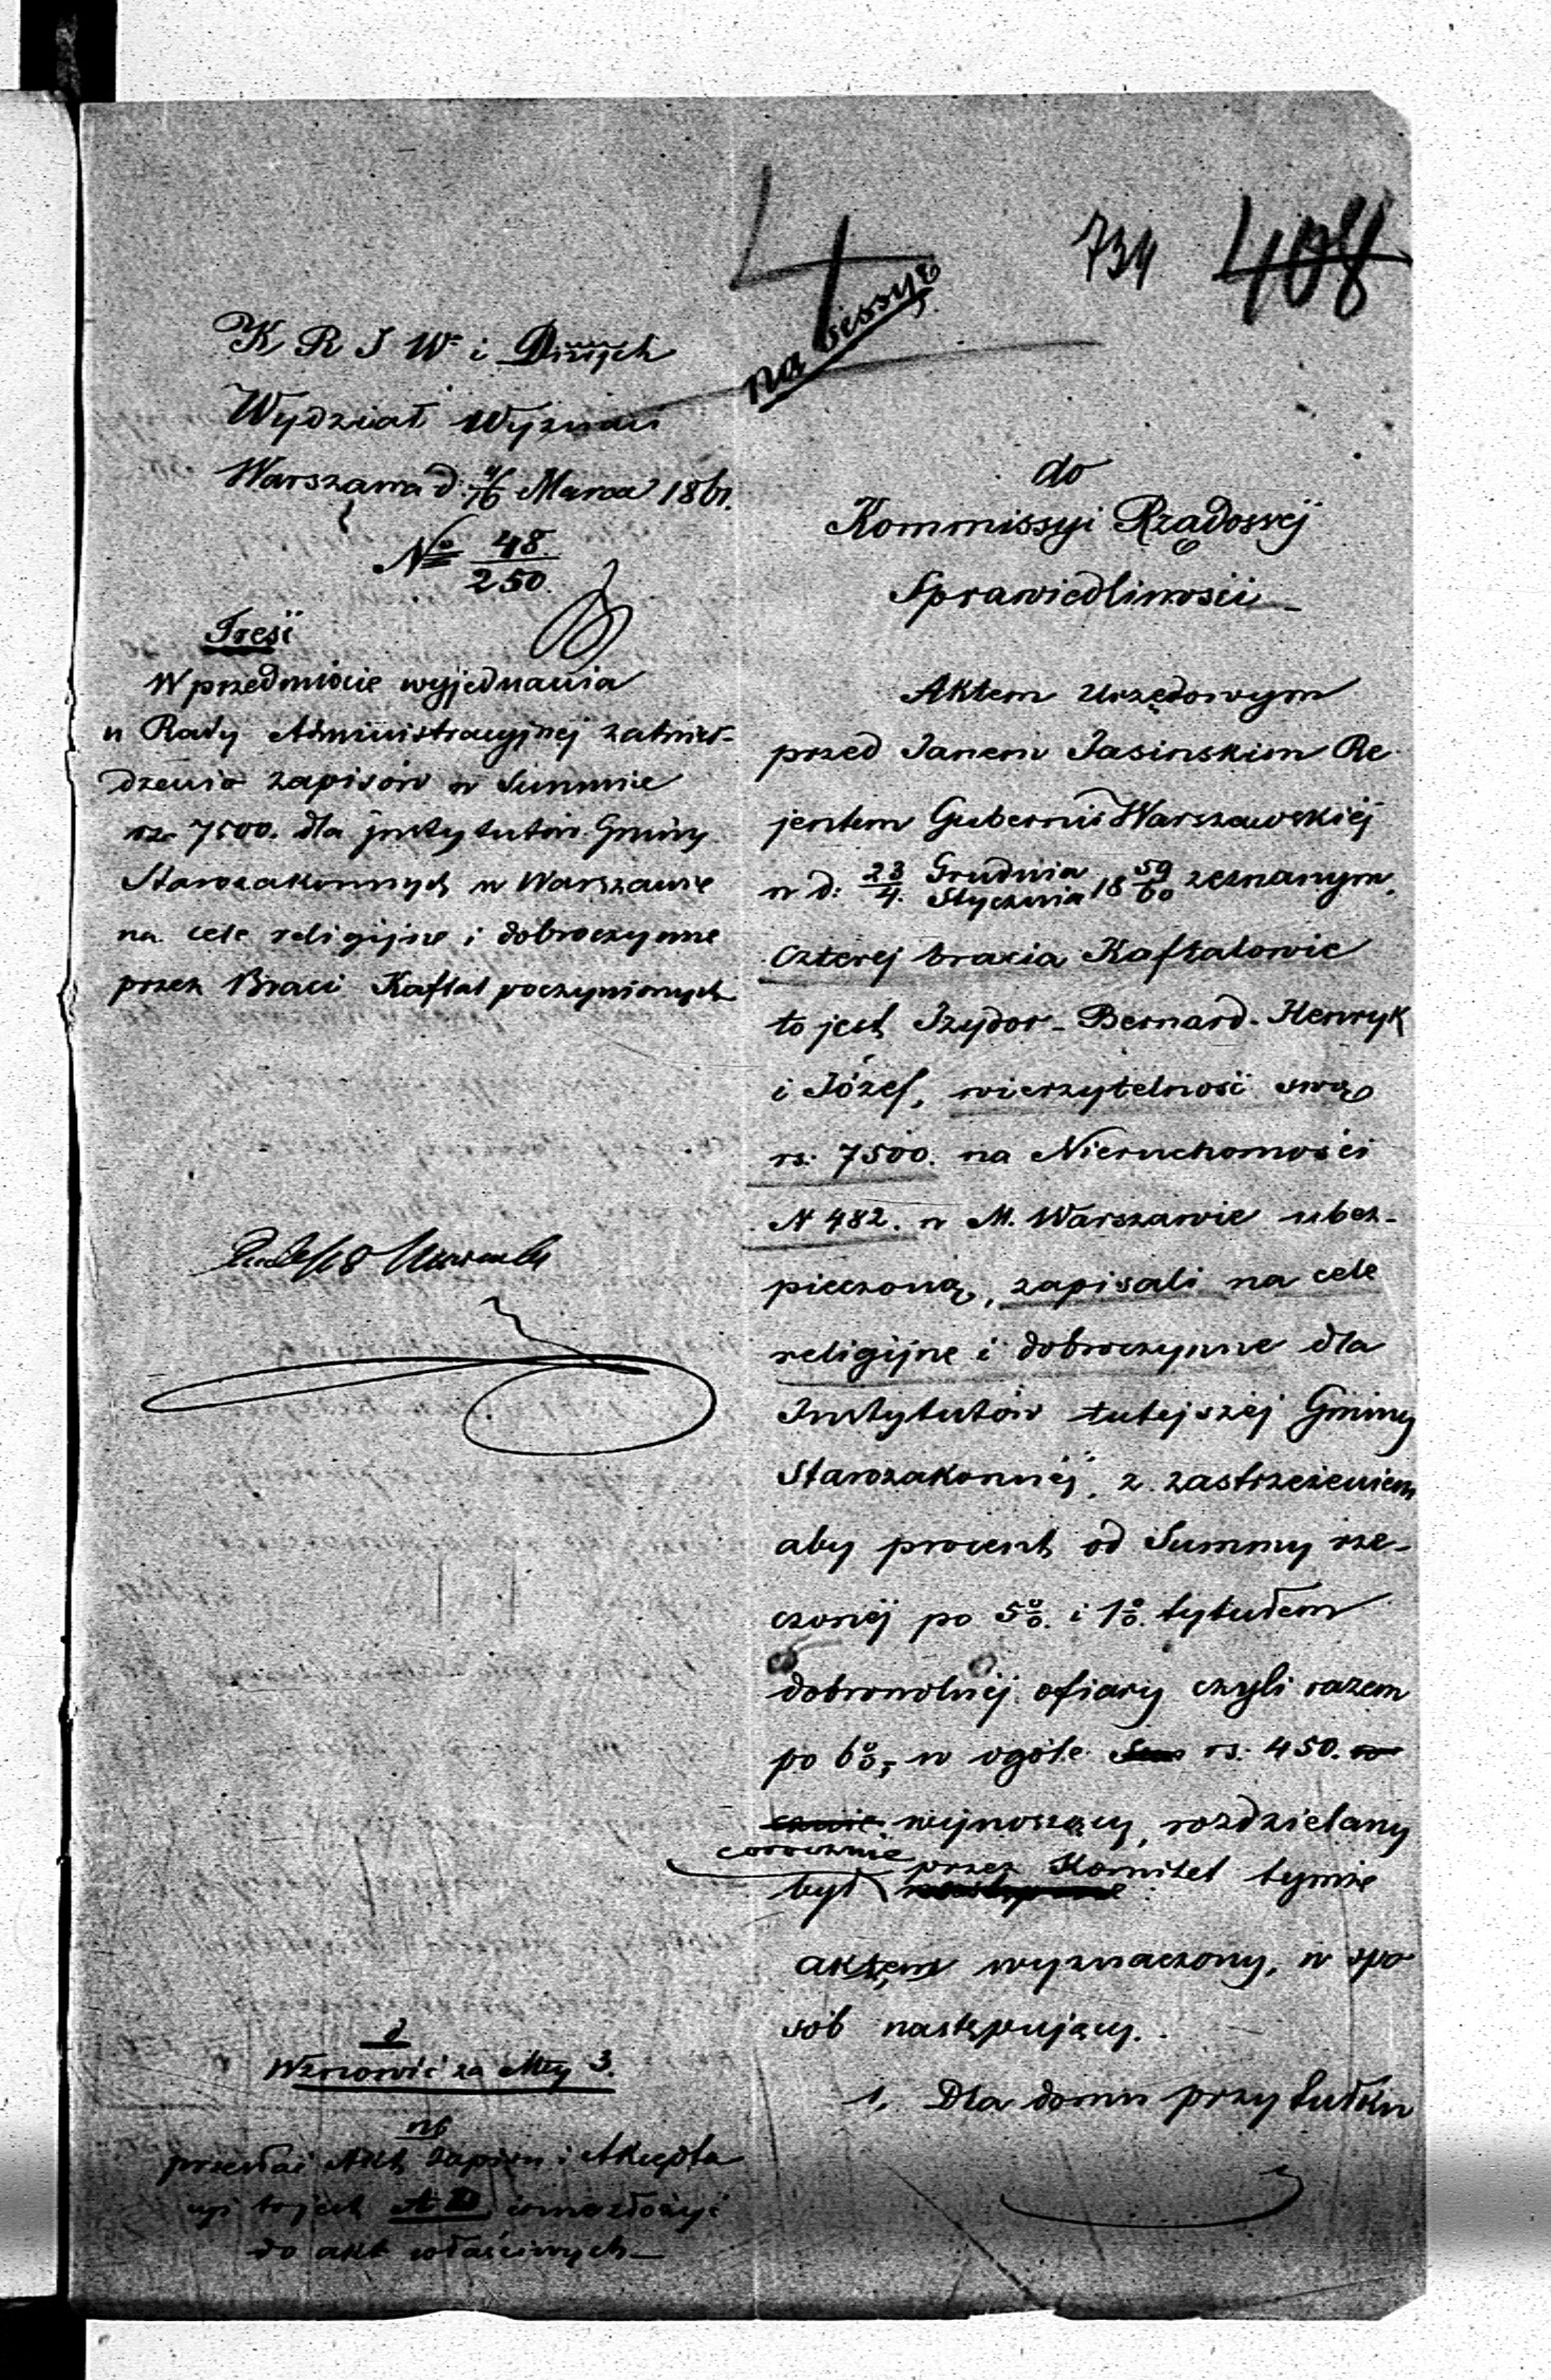 4
734 408
na sessyę
K R S W i D
Wydział Wyznań
Warszawa d. 4/16 Marca 1861.
№ 48/250.
Treść
W przedmiocie wyjednania
u Rady Administracyjnej zatwier-
dzenia zapisów w Summie
rs. 7500. dla instytutów Gminy
Starozakonnych w Warszawie
na cele religijne i dobroczynne
przez Braci Kaftal poczynionych
d
Wznowić za Mcy 3.
nb
przesłać Akt zapisu i Akcepta
cyi to jest
do akt właściwych
do
Kommissyi Rządowéj
Sprawiedliwości
Aktem urzędowym
przed Janem Jasinskim Re
jentem Gubernii Warszawskiéj
w d: 23/4. Grudnia/Stycznia 18 59/60 zeznanym,
czterej bracia Kaftalowie
to jest Izydor - Bernard - Henryk
i Józef, wierzytelność swą
rs. 7500. na Nieruchomości
N 482. w M. Warszawie ubez-
pieczoną, zapisali na cele
religijne i dobroczynne dla
Instytutów tutejszéj Gminy
Starozakonnéj, z zastrzeżeniem
aby procent od Summy rze-
czonéj po 5%. i 1%. tytułem
dobrowolnéj ofiary czyli razem
po 6%, w ogóle rs. 450.
wynoszący, rozdzielany
corocznie
był przez Komitet tymże
aktem wyznaczony, w spo
sób następujący.
1, Dla domu przytułku